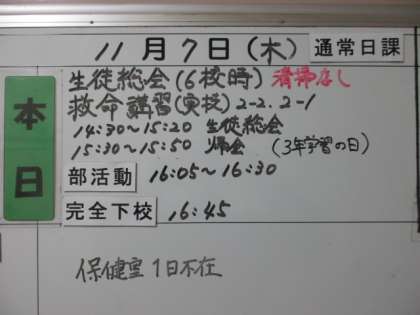 11月7日(木) 通常日課
本日
生徒総会(6校時) 清掃なし
救命講習(実技)2-2.2-1
14:30~15:20 生徒総会
15:30~15:50 帰会 (3年学習の日)
部活動 16:05~16:30
完全下校 16:45
保健室 1日不在